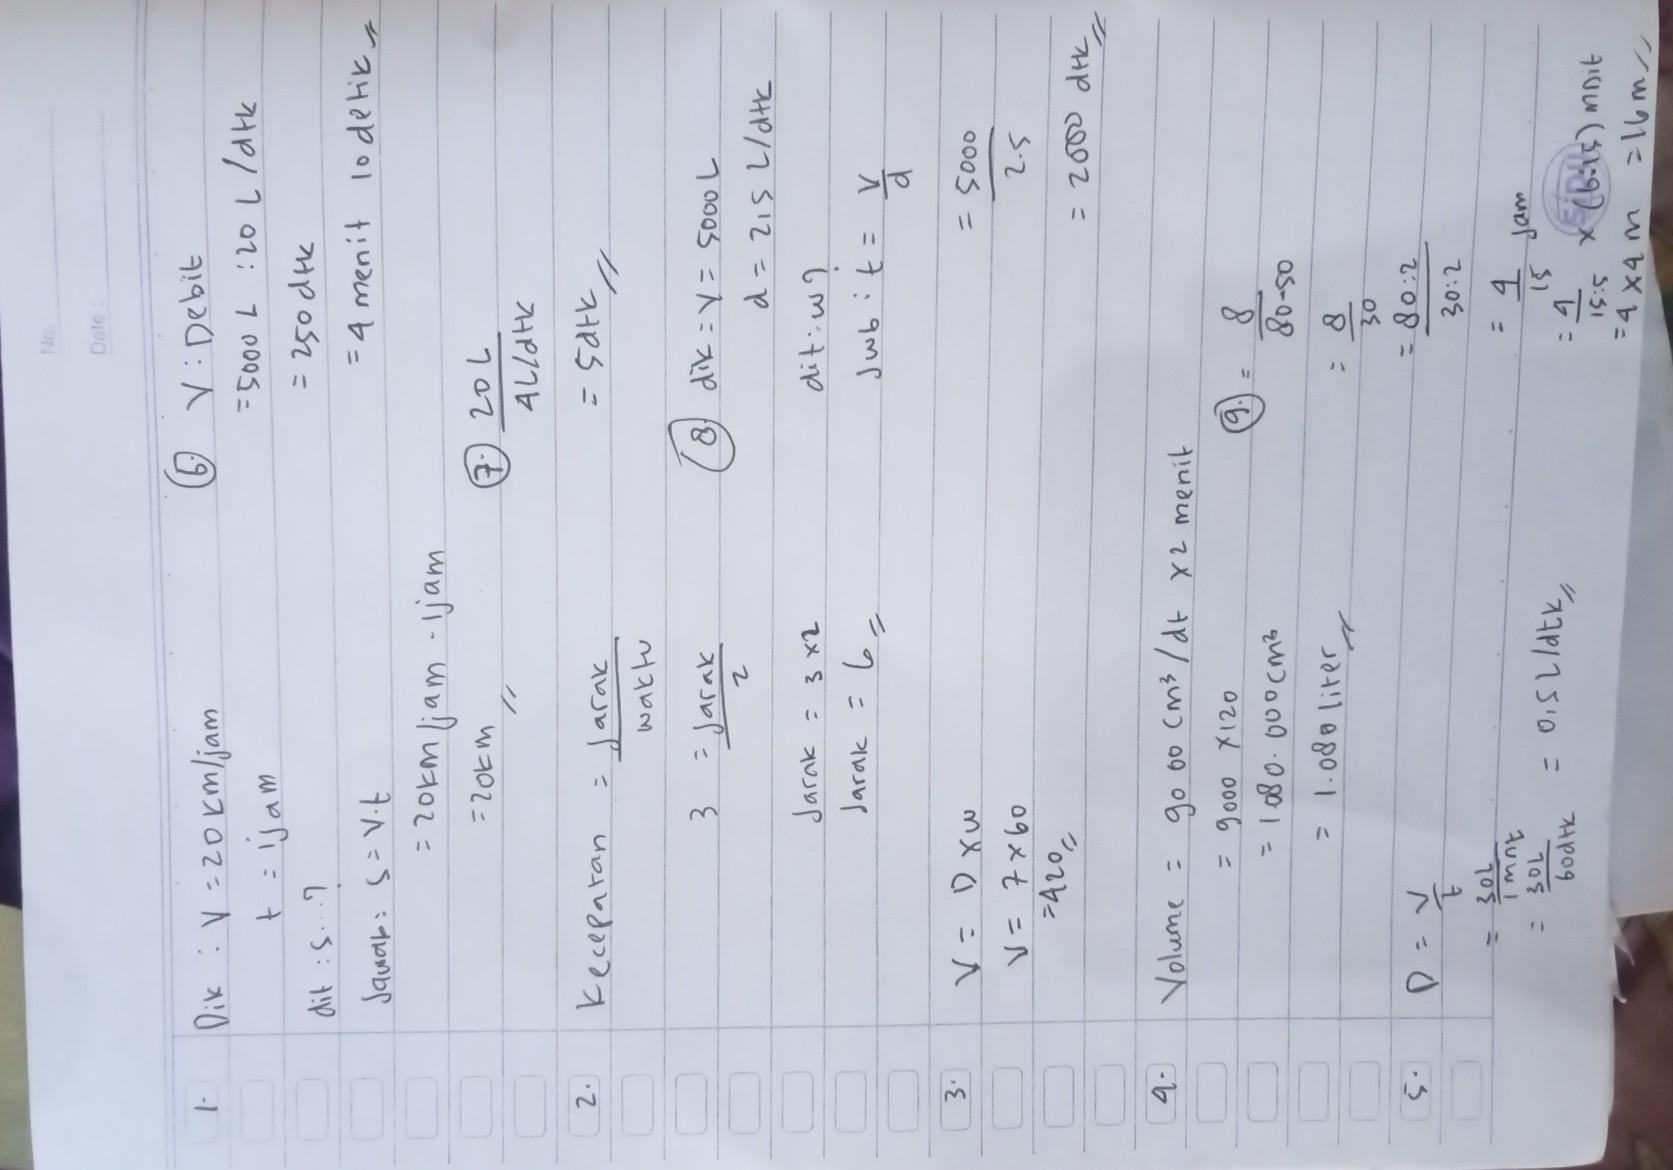 No.
Date :
1. Dik : V = 20 km/jam
t = 1 jam
dit : s...?
Jawab : s = v.t
= 20 km/jam . 1 jam
= 20 km
2. Kecepatan = Jarak
waktu
3 = Jarak
2
Jarak = 3 x 2
Jarak = 6
3. V = D x w
V = 7 x 60
= 420
4. Volume = 90 00 cm³/dt x 2 menit
= 9000 x 120
= 1.080.000 cm³
= 1.080 liter
5. D = V
t
= 30 L
1 mnt
= 30 L
60 dtk
= 0,5 L/dtk
6. V : Debit
= 5000 L : 20 L/dtk
= 250 dtk
= 4 menit 10 detik
7. 20 L
4 L/dtk
= 5 dtk
8 dik = V = 5000 L
d = 2,5 L/dtk
dit : w?
Jwb : t = V
d
= 5000
2.5
= 2000 dtk
9. = 8
80-50
= 8
30
= 80:2
30:2
= 4 jam
15
= 4
15:5
= 4 x 4 m = 16 m